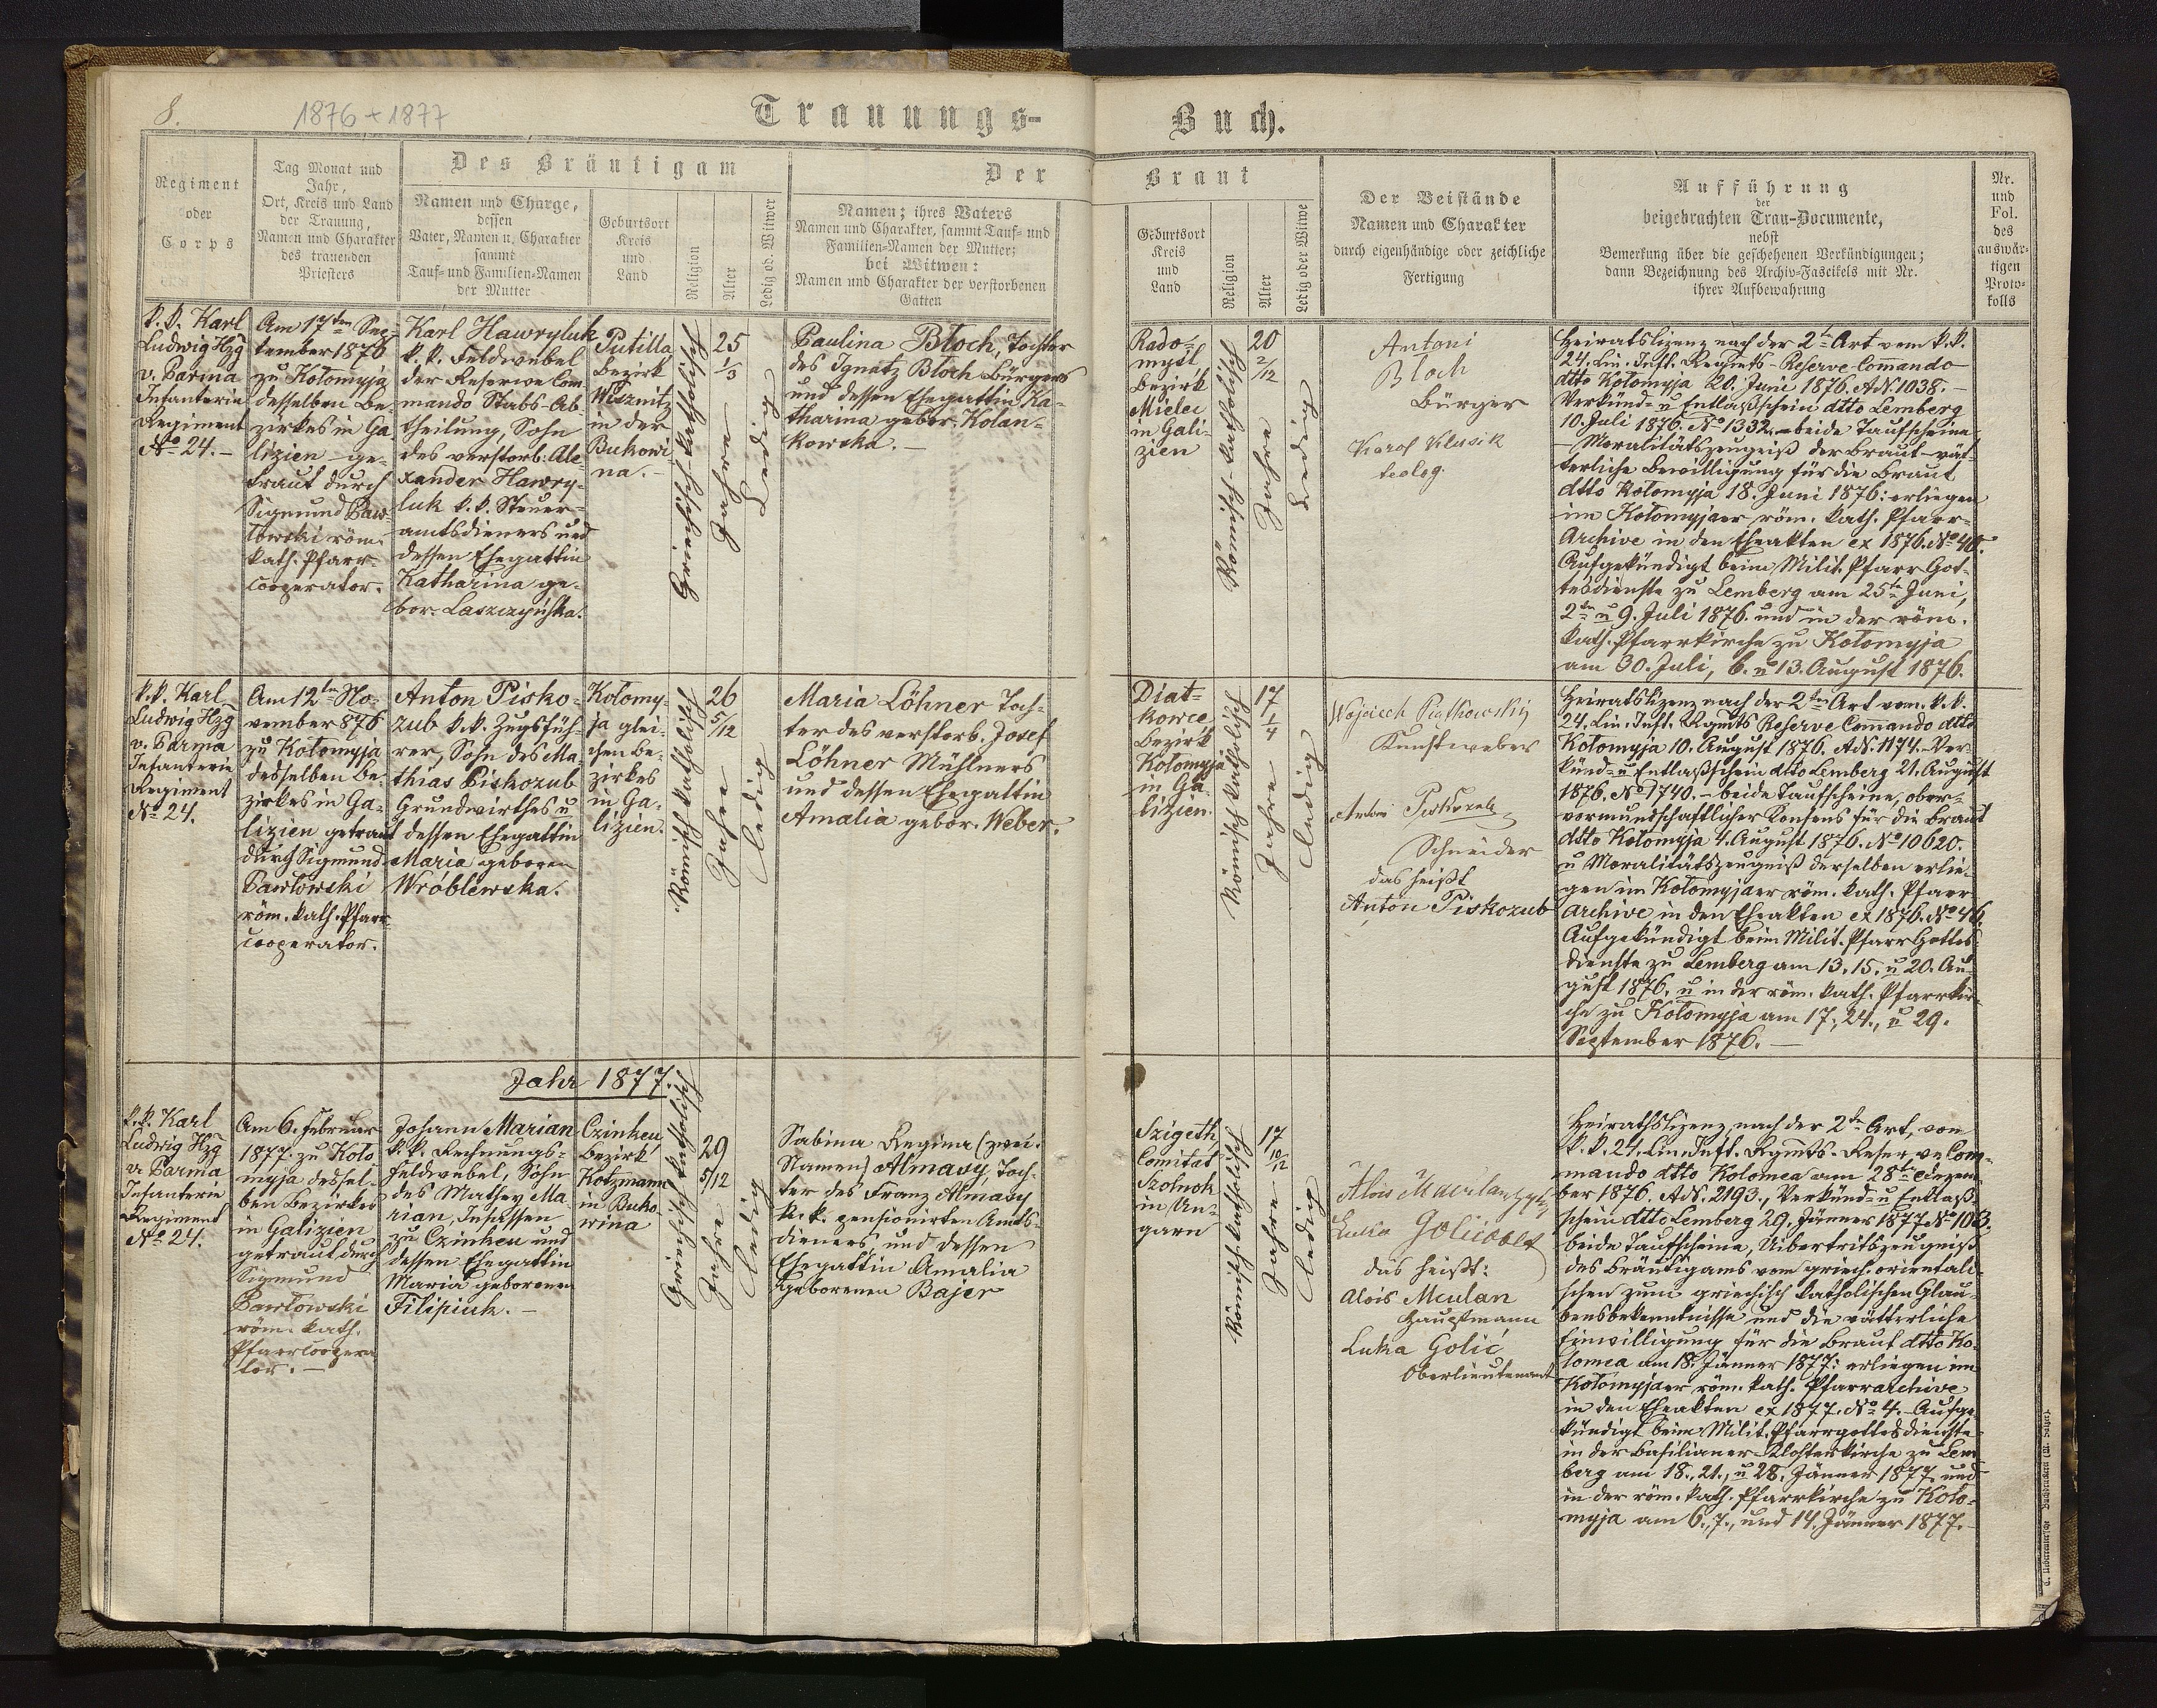 8.
1876 + 1877
Trauungs-
Buch.
Regiment
oder
Corps
Tag Monat und
Jahr,
Ort, Kreis und Land
der Trauung,
Namen und Charakter
des trauenden
Priesters
Des Bräutigam
Namen und Charge,
dessen
Vater, Namen u. Charakter
sammt
Tauf- und Familien-Namen
der Mutter
Geburtsort
Kreis
und
Land
Religion
Alter
Ledig od. Witwer
Der
Namen; ihres Vaters
Namen und Charakter, sammt Tauf- und
Familien-Namen der Mutter;
bei Witwen:
Namen und Charakter der verstorbenen
Gatten
Braut
Geburtsort
Kreis
und
Land
Religion
Alter
Ledig oder Witwe
Der Beistände
Namen und Charakter
durch eigenhändige oder zeichliche
Fertigung
Aufführung
der
beigebrachten Trau-Documente,
nebst
Bemerkung über die geschehenen Verkündigungen;
dann Bezeichnung des Archiv-Fascikels mit Nr.
ihrer Aufbewahrung
Nr.
und
Fol.
des
auswär-
tigen
Proto-
kolls
k.k. Karl
Ludwig Hzg
v. Parma
Infanterie
Regiment
No 24.-
Am 17ten Sep-
tember 1876
zu Kołomyja
desselben Be-
zirkes in Ga
lizien ge-
traut durch
Sigmund Paw-
łowski röm.
kath. Pfarr-
cooperator.
Karl Hawryluk
k.k. Feldwebel
der Reserve Com
mando Stabs-Ab-
theilung, Sohn
des verstorb. Ale-
xander Hawry-
luk k.k. Steuer-
amtsdieners und
dessen Ehegattin
Katharina ge-
bor. Laszczyńska.
Putilla
Bezirk
Wisznitz
in der
Bukowi-
na.-
Griechisch-katholisch
25
1/3
Jahre
Ledig
Paulina Błoch, Tochter
des Ignatz Błoch Bürgers
und dessen Ehegattin Ka-
tharina gebor. Kolan-
kowska.-
Rado-
myśl,
Bezirk
Mielec
in Gali-
zien
Römisch-katholisch
20
2/12
Jahre
Ledig
Antoni
Bloch
Bürger
Karol Klusik
teolog.
Heiratslizenz nach der 2ten Art vom k.k.
24. Lin. Inft. Regmts-Reserve Commando
dtto Kołomyja 20. Juni 1876. AN. 1038.-
Verkünd- u Entlaßschein dtto Lemberg
10. Juli 1876. No 1332. - beide Taufscheine
- Moralitätszeugniß der Braut - vät-
terliche Bewilligung für die Braut
dtto Kołomyja 18. Juni 1876: erliegen
im Kołomyjaer röm. kath. Pfarr-
Archive in den Eheakten ex 1876. No 40.
Aufgekündigt beim Milit. Pfarr Got-
tesdienste zu Lemberg am 25ten Juni,
2ten u 9. Juli 1876. und in der röm.
kath. Pfarrkirche zu Kołomyja
am 30. Juli, 6. u 13. August 1876.
k.k. Karl
Ludwig Hzg
v. Parma
Infanterie
Regiment
No 24.
Am 12ten No-
vember 876
zu Kołomyja
desselben Be-
zirkes in Ga-
lizien getraut
durch Sigmund
Pawłowski
röm. kath. Pfarr-
cooperator.
Anton Pisko-
zub k.k. Zugsfüh-
rer, Sohn des Ma-
thias Piskozub
Grundwirthes u
dessen Ehegattin
Maria geboren
Wróblewska.
Kołomy-
ja glei-
chen Be-
zirkes
in Ga-
lizien.
Römisch katholisch
26
5/12
Jahre
ledig
Maria Löhner Toch-
ter des verstorb. Josef
Löhner Mühlners
und dessen Ehegattin
Amalia gebor. Weber.
Diat-
kowce
Bezirk
Kołomyja
in Ga-
lizien.
Römisch katholisch
17
1/4
Jahre
Ledig
Wojciech Piątkowski
Kunstweber
Antoni Piskozub
Schneider
das heißt
Anton Piskozub
Heiratslizenz nach der 2ten Art vom k.k.
24. Lin. Inft. Rgmts Reserve Commando dtto
Kołomyja 10. August 1876. AN. 1174. - Ver-
künd- u Entlaßschein dtto Lemberg 21. August
1876. No 1740. - beide Taufscheine, ober-
vormundschaftlicher Konsens für die Braut
dtto Kołomyja 4. August 1876. No 10620.
u Moralitätszeugniß derselben erlie-
gen im Kołomyjaer röm. kath. Pfarr
Archive in den Eheakten ex 1876. No 46.
Aufgekündigt beim Milit. Pfarr Gottes
dienste zu Lemberg am 13. 15. u 20. Au-
gust 1876. u in der röm. kath. Pfarrkir-
che zu Kołomyja am 17., 24., u 29.
September 1876.-
Jahr 1877.
k.k. Karl
Ludwig Hzg
v. Parma
Infanterie
Regiment
No 24.
Am 6. Februar
1877. zu Koło
myja dessel-
ben Bezirkes
in Galizien
getraut durch
Sigmund
Pawłowski
röm. kath.
Pfarrcoopera
tor.-
Johann Marian
k.k. Rechnungs-
feldwebel, Sohn
des Mathey Ma-
rian, Insassen
zu Czinkeu und
dessen Ehegattin
Maria geborenen
Filipiuk.-
Czinkeu,
Bezirk
Kotzmann
in Buko
wina
Griechisch katholisch
29
5/12
Jahre
ledig
Sabina Regina (zwei
Namen) Almasy, Toch-
ter des Franz Almasy
k.k. pensionirten Amts-
dieners und dessen
Ehegattin Amalia
geborenen Bajer
Szigeth
Comitat
Szolnok
in Un-
garn
Römisch katholisch
17
10/12
Jahre
ledig
Alois Meulan Hptm
Luka Golić Oblt
das heißt:
Alois Meulan
Hauptmann
Luka Golić
Oberlieutenant
Heirathslizenz nach der 2ten Art, von
k.k. 24. Lin. Inft. Rgmts. Reserve Com-
mando dtto Kolomea am 28ten Dezem-
ber 1876. AN. 2193., Verkünd- u Entlaß-
schein dtto Lemberg 29. Jänner 1877 No 103.
beide Taufscheine, Uibertritszeugniß
des Bräutigams vom griech. orientali-
schen zum griechisch katholischen Glau-
bensbekenntnisse und die vätterliche
Einwilligung für die Braut dtto Ko-
lomea am 18. Jänner 1877: erliegen im
Kołomyjaer röm. kath. Pfarrarchive
in den Eheakten ex 1877. No 4. - Aufge-
kündigt beim Milit. Pfarrgottesdienste
in der Basilianer-Klosterkirche zu Lem
berg am 18., 21., u 28. Jänner 1877. und
in der röm. kath. Pfarrkirche zu Koło-
myja am 6., 7., und 14. Jänner 1877.-